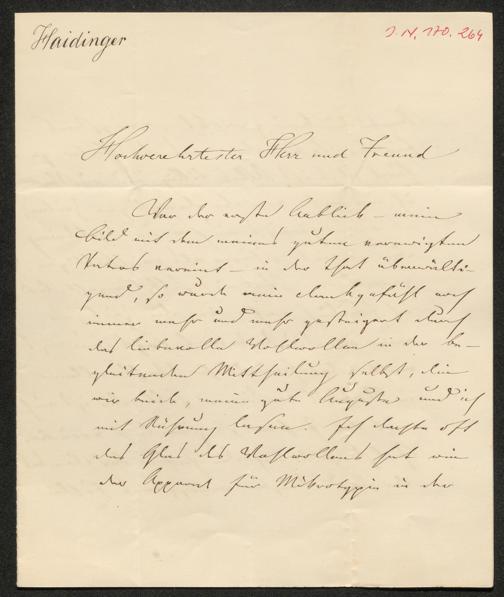 Haidinger
J. N. 170.264
Hochverehrtester Herr und Freund
War der erste Anblick – mein
Bild mit dem meines guten verewigten
Vaters vereint – in der That überwälti-
gend, so wurde mein Dankgefühl noch
immer mehr und mehr gesteigert durch
das liebevolle Wohlwollen in der be-
gleitenden Mittheilung selbst, die
wir beide, meine gute Auguste und ich
mit Rührung lasen. Ich dachte oft
das Glas des Wohlwollens hat wie
der Apparat für Mikrotypie in der